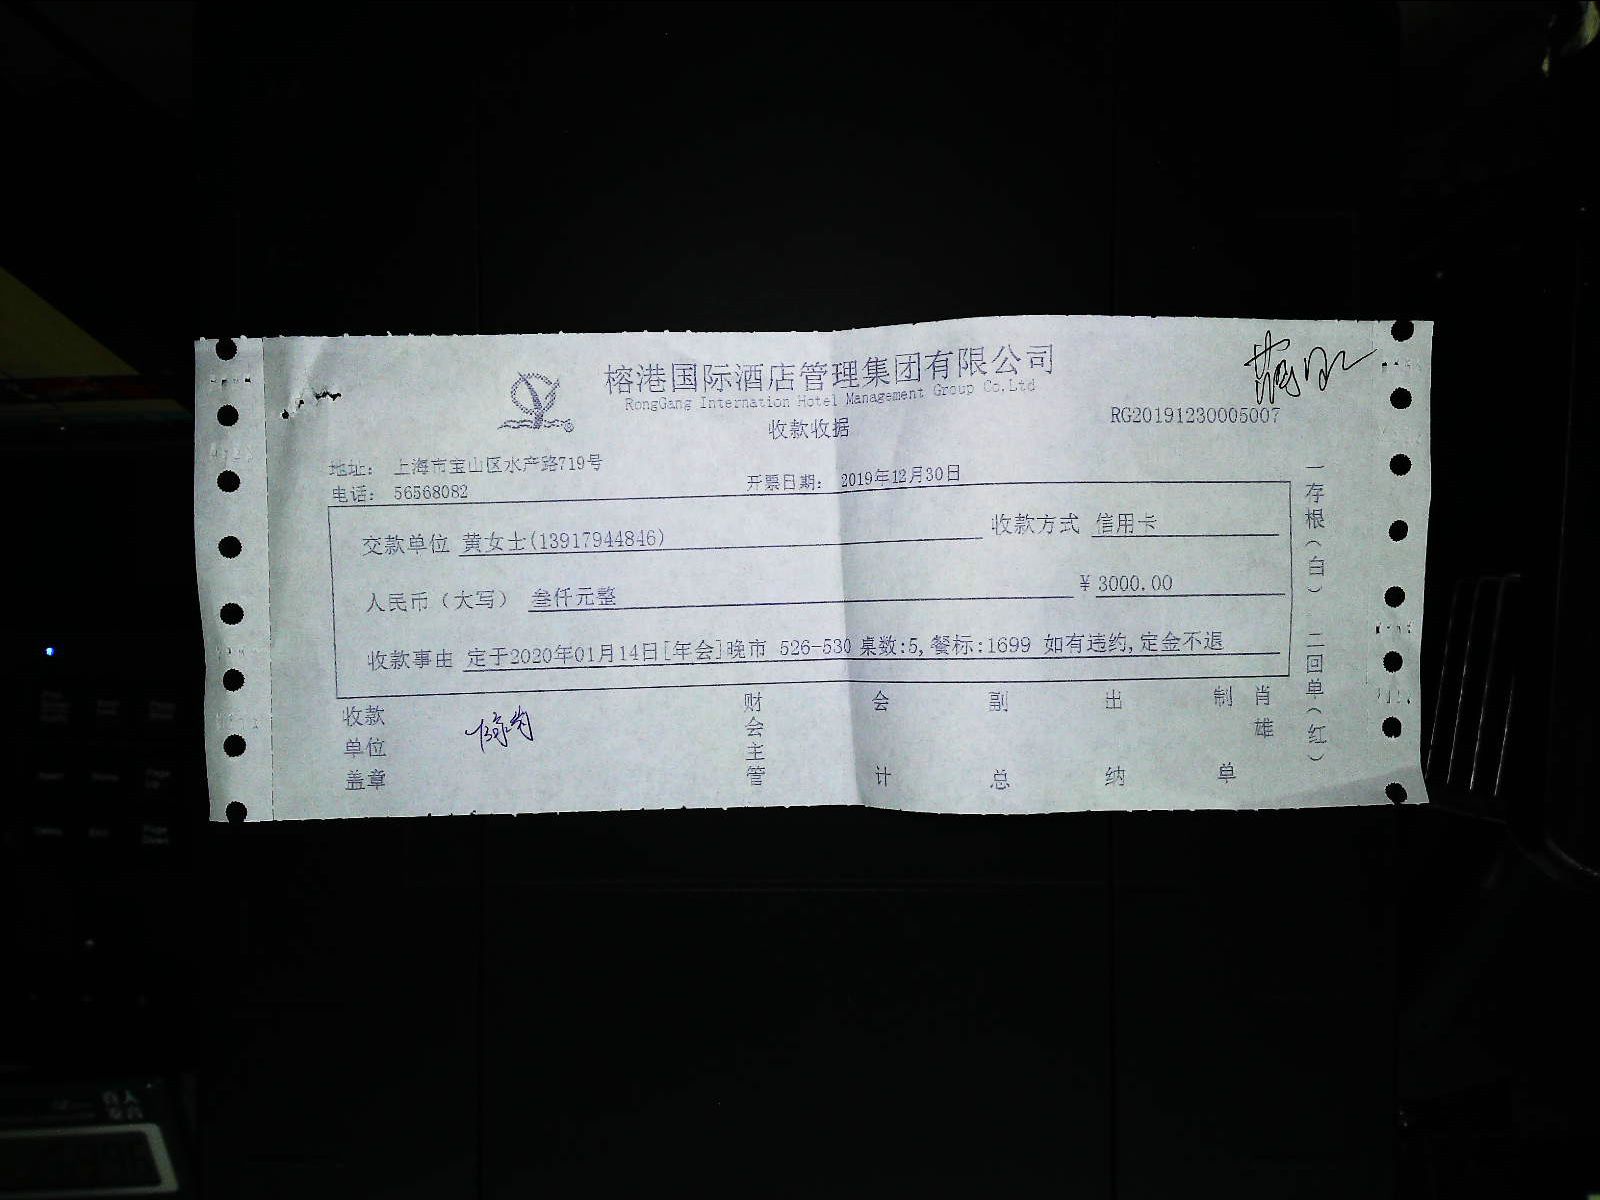 榕港国际酒店管理集团有限公司
RongGang Internation Hotel Management Group Co.Ltd
收款收据
RG20191230005007
地址： 上海市宝山区水产路719号
电话： 56568082
开票日期： 2019年12月30日
交款单位 黄女士(13917944846)
收款方式 信用卡
人民币（大写） 叁仟元整
￥3000.00
收款事由 定于2020年01月14日[年会]晚市 526-530 桌数:5,餐标:1699 如有违约,定金不退
收款单位盖章
财会主管
会计
副总
出纳
制单
肖雄
一存根（白） 二回单（红）